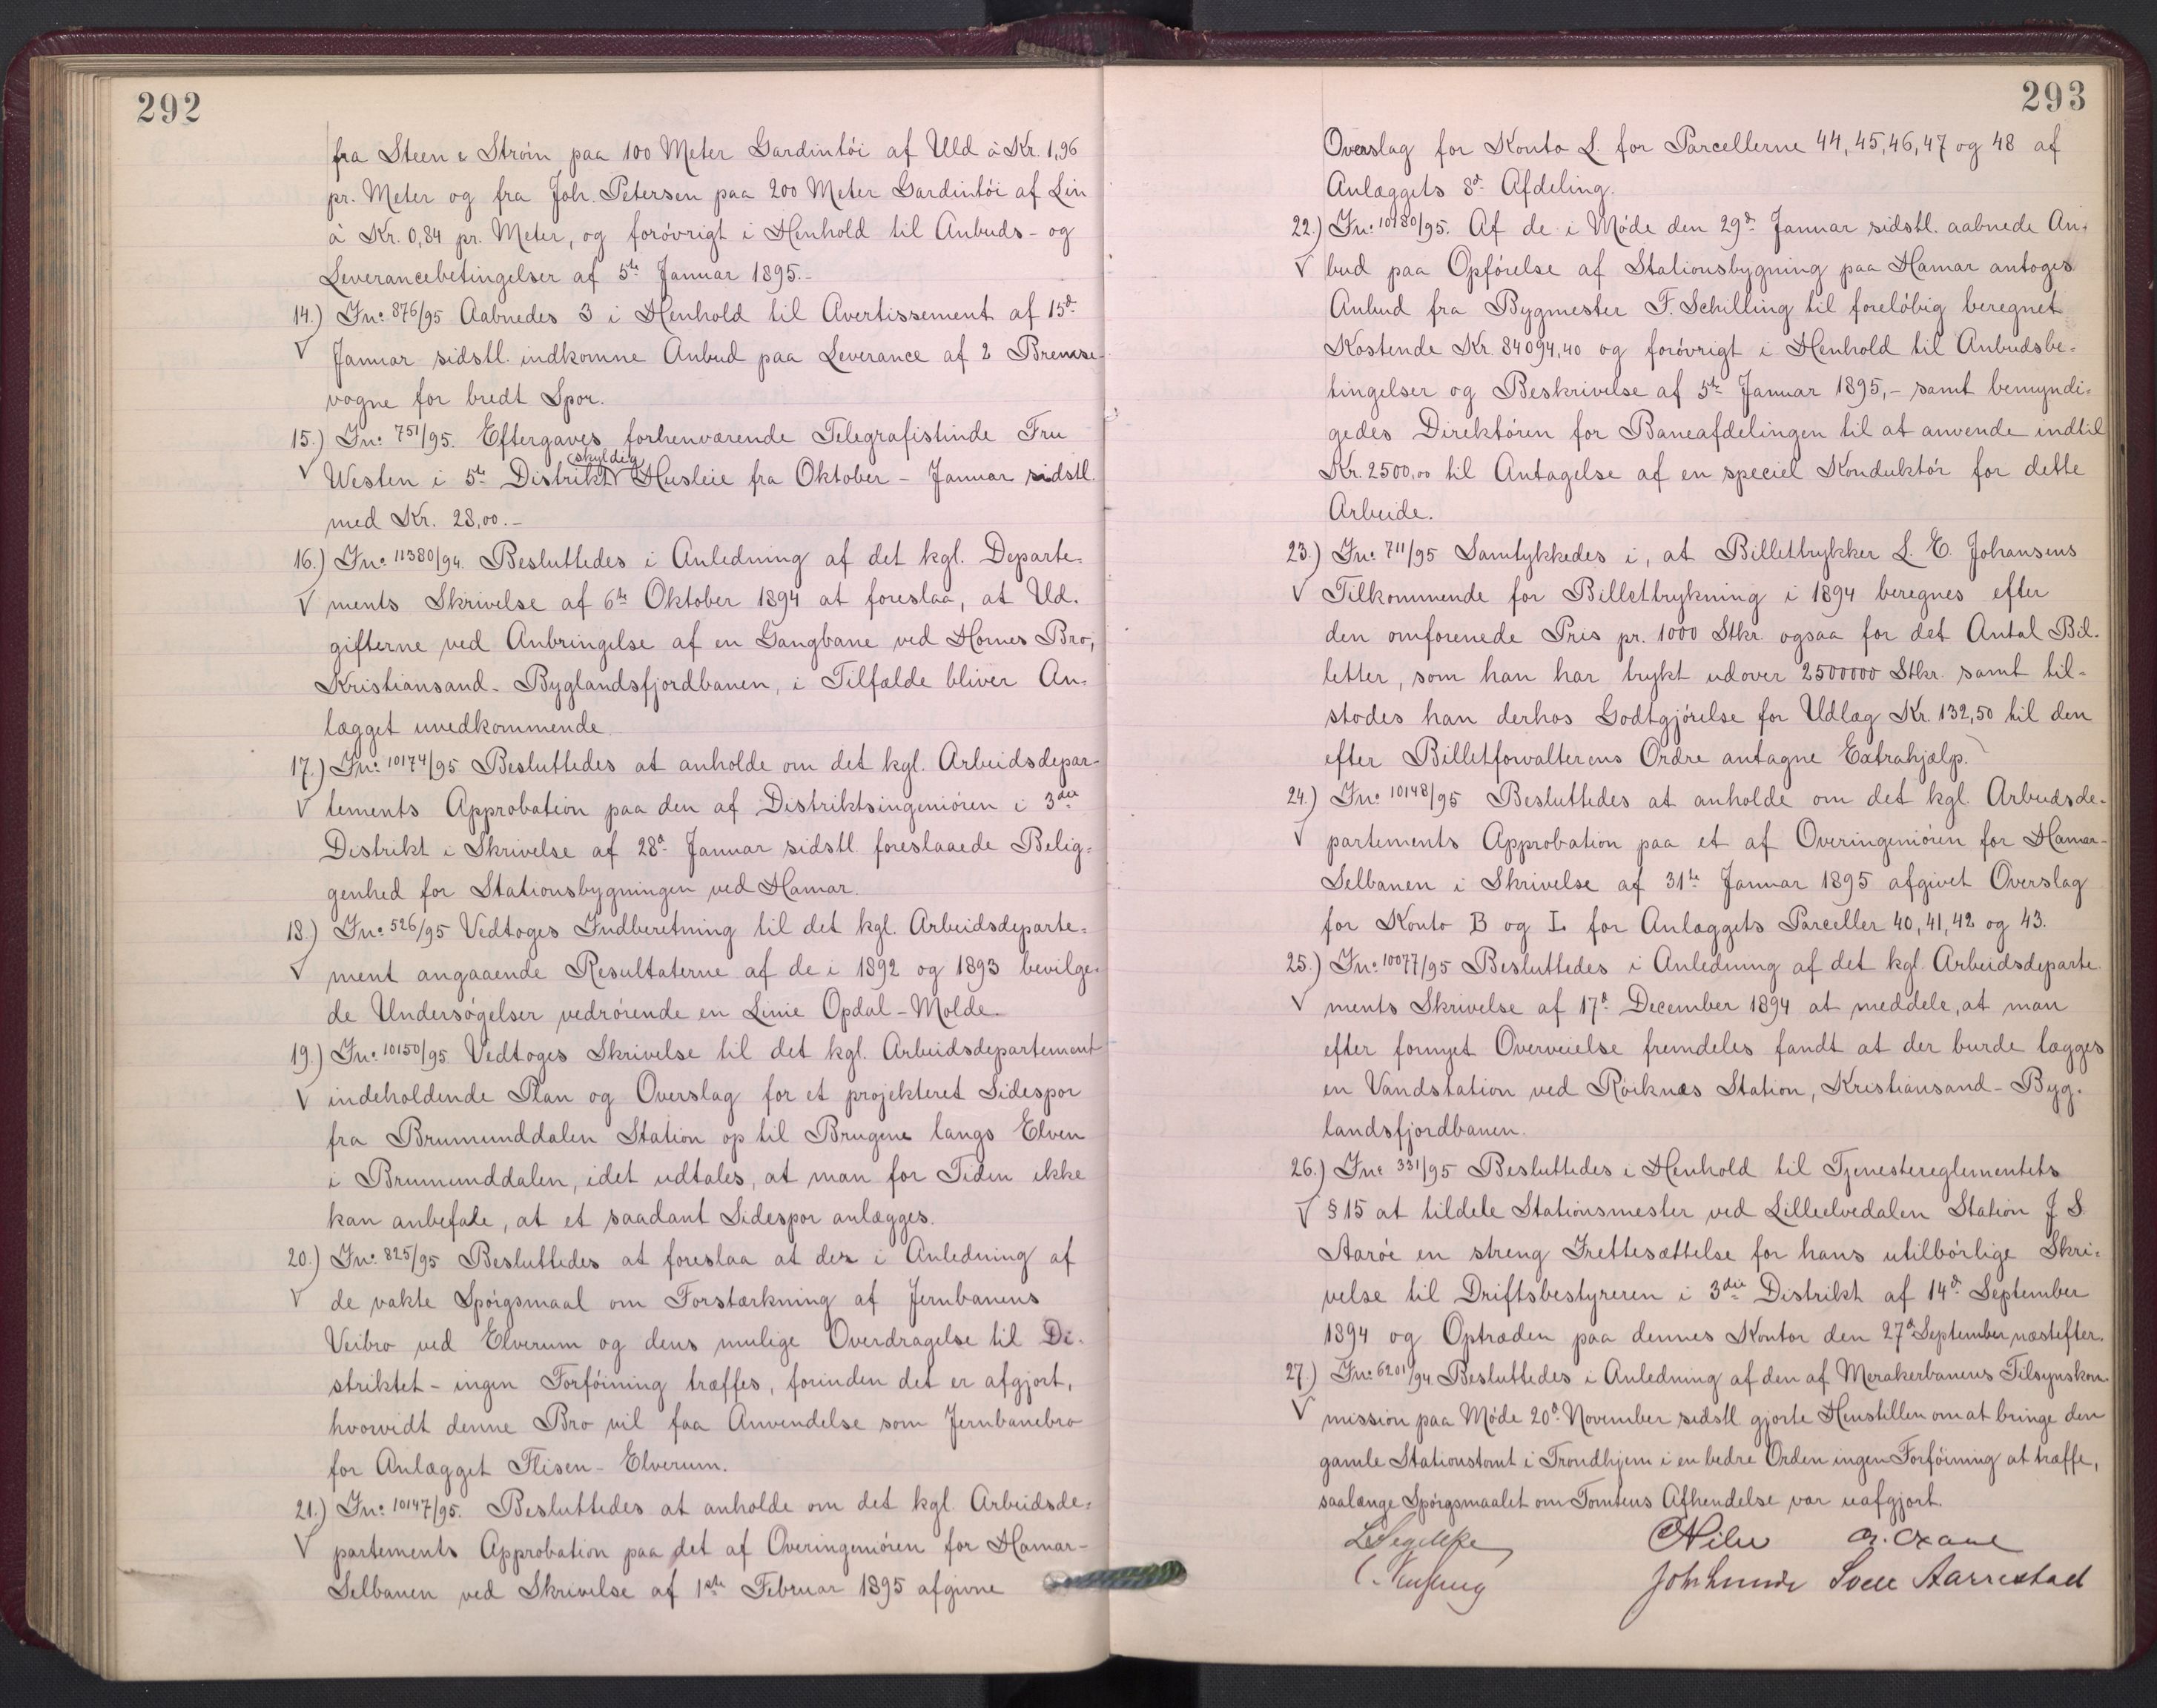 292
fra Steen & Strøm paa 100 Meter Gardintöi af Uld à Kr. 1,96
pr. Meter og fra Joh. Petersen paa 200 Meter Gardintöi af Lin
à Kr. 0,84 pr. Meter, og forövrigt i Henhold til Anbuds- og
Leverancebetingelser af 5te Januar 1895.-
14.) Jn: 876/95 Aabnedes 3 i Henhold til Avertissement af 15d
V Januar sidstl. indkomne Anbud paa Leverance af 2 Bremse-
vogne for bredt Spor.
15.) Jn: 751/95. Eftergaves forhenværende Telegrafistinde Fru
V Westen i 5te Distrikt skyldig Husleie fra Oktober - Januar sidstl.
med Kr. 28,00.-
16.) Jn: 11380/94. Besluttedes i Anledning af det kgl. Departe-
V ments Skrivelse af 6te Oktober 1894 at foreslaa, at Ud-
gifterne ved Anbringelse af en Gangbane ved Homes Bro,
Kristiansand-Byglandsfjordbanen, i Tilfælde bliver An-
lægget uvedkommende
17.) Jn: 10174/95 Besluttedes at anholde om det kgl. Arbeidsdepar-
V tements Approbation paa den af Distriktsingeniören i 3die
Distrikt i Skrivelse af 28d Januar sidstl. foreslaaede Belig-
genhed for Stationsbygningen ved Hamar.
18.) Jn: 526/95 Vedtoges Indberetning til det kgl. Arbeidsdeparte-
V ment angaaende Resultaterne af de i 1892 og 1893 bevilge-
de Undersögelser vedrörende en Linie Opdal-Molde.
19.) Jn: 10150/95. Vedtoges Skrivelse til det kgl. Arbeidsdepartement
V indeholdende Plan og Overslag for et projekteret Sidespor
fra Brumunddalen Station op til Brugene langs Elven
i Brumunddalen, idet udtales, at man for Tiden ikke
kan anbefale, at et saadant Sidespor anlægges.
20.) Jn: 825/95 Besluttedes at foreslaa at der i Anledning af
V de vakte Spörgsmaal om Forstærkning af Jernbanens
Veibro ved Elverum og dens mulige Overdragelse til Di-
striktet - ingen Forföining træffes, forinden det er afgjort,
hvorvidt denne Bro vil faa Anvendelse som Jernbanebro
for Anlægget Flisen-Elverum.
21.) Jn: 10147/95. Besluttedes at anholde om det kgl. Arbeidsde-
V partements Approbation paa det af Overingeniören for Hamar-
Selbanen ved Skrivelse af 1ste Februar 1895 afgivne
293
Overslag for Konto L. for Parcellerne 44, 45, 46, 47 og 48 af
Anlæggets 8d Afdeling.
22.) Jn: 10180/95. Af de i Möde den 29d Januar sidstl. aabnede An-
V bud paa Opförelse af Stationsbygning paa Hamar antoges
Anbud fra Bygmester F. Schilling til forelöbig beregnet
Kostende Kr. 84094,40 og forövrigt i Henhold til Anbudsbe-
tingelser og Beskrivelse af 5te Januar 1895,- samt bemyndi-
gedes Direktören for Baneafdelingen til at anvende indtil
Kr. 2500,00 til Antagelse af en speciel Konduktör for dette
Arbeide.
23.) Jn: 711/95 Samtykkedes i, at Billettrykker L. E. Johansens
V Tilkommende for Billettrykning i 1894 beregnes efter
den omforenede Pris pr. 1000 Stkr. ogsaa for det Antal Bil-
letter, som han har trykt udover 2500000 Stkr. samt til-
stodes han derhos Godtgjörelse for Udlæg Kr. 132,50 til den
efter Billetforvalterens Ordre antagne Extrahjælp.
24.) Jn: 10148/95 Besluttedes at anholde om det kgl. Arbeidsde-
V partements Approbation paa et af Overingeniören for Hamar-
Selbanen i Skrivelse af 31te Januar 1895 afgivet Overslag
for Konto B og L for Anlæggets Parceller 40, 41, 42 og 43.
25.) Jn: 10077/95 Besluttedes i Anledning af det kgl. Arbeidsdeparte-
V ments Skrivelse af 17d December 1894 at meddele, at man
efter fornyet Overveielse fremdeles fandt at der burde lægges
en Vandstation ved Röiknæs Station, Kristiansand-Byg-
landsfjordbanen.
26.) Jn: 331/95 Besluttedes i Henhold til Tjenestereglementets
V § 15 at tildele Stationsmester ved Lilleelvedalen Station J S.
Aaröe en streng Irettesættelse for hans utilbörlige Skri-
velse til Driftsbestyreren i 3die Distrikt af 14d September
1894 og Optræden paa dennes Kontor den 27d September næstefter.
27.) Jn: 6201/94 Besluttedes i Anledning af den af Merakerbanens Tilsynskom-
V mission paa Möde 20d November sidstl gjorte Henstillen om at bringe den
gamle Stationstomt i Trondhjem i en bedre Orden ingen Forföining at træffe,
saalænge Spörgsmaalet om Tomtens Afhendelse var uafgjort.
LSegelcke
Joh Lunde Sven Aarrestad